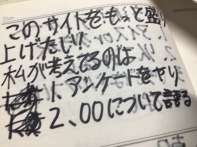 このサイトをもっと盛り
上げたい！
私が考えてるのは
1、アンケートをやり
2、〇〇について語る